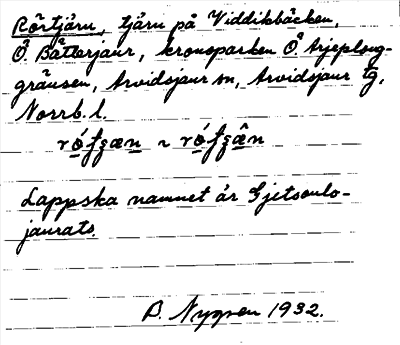 Rörtjärn, tjärn på Viddikbäcken,
Ö. Båtterjaur, kronoparken Ö Arjeploug-
gränsen, Arvidsjaur sn, Arvidsjaur tg,
Norrb. l.
Lappska namnet är Gjetsoulo-
jaurats.
B. Nygren 1932.